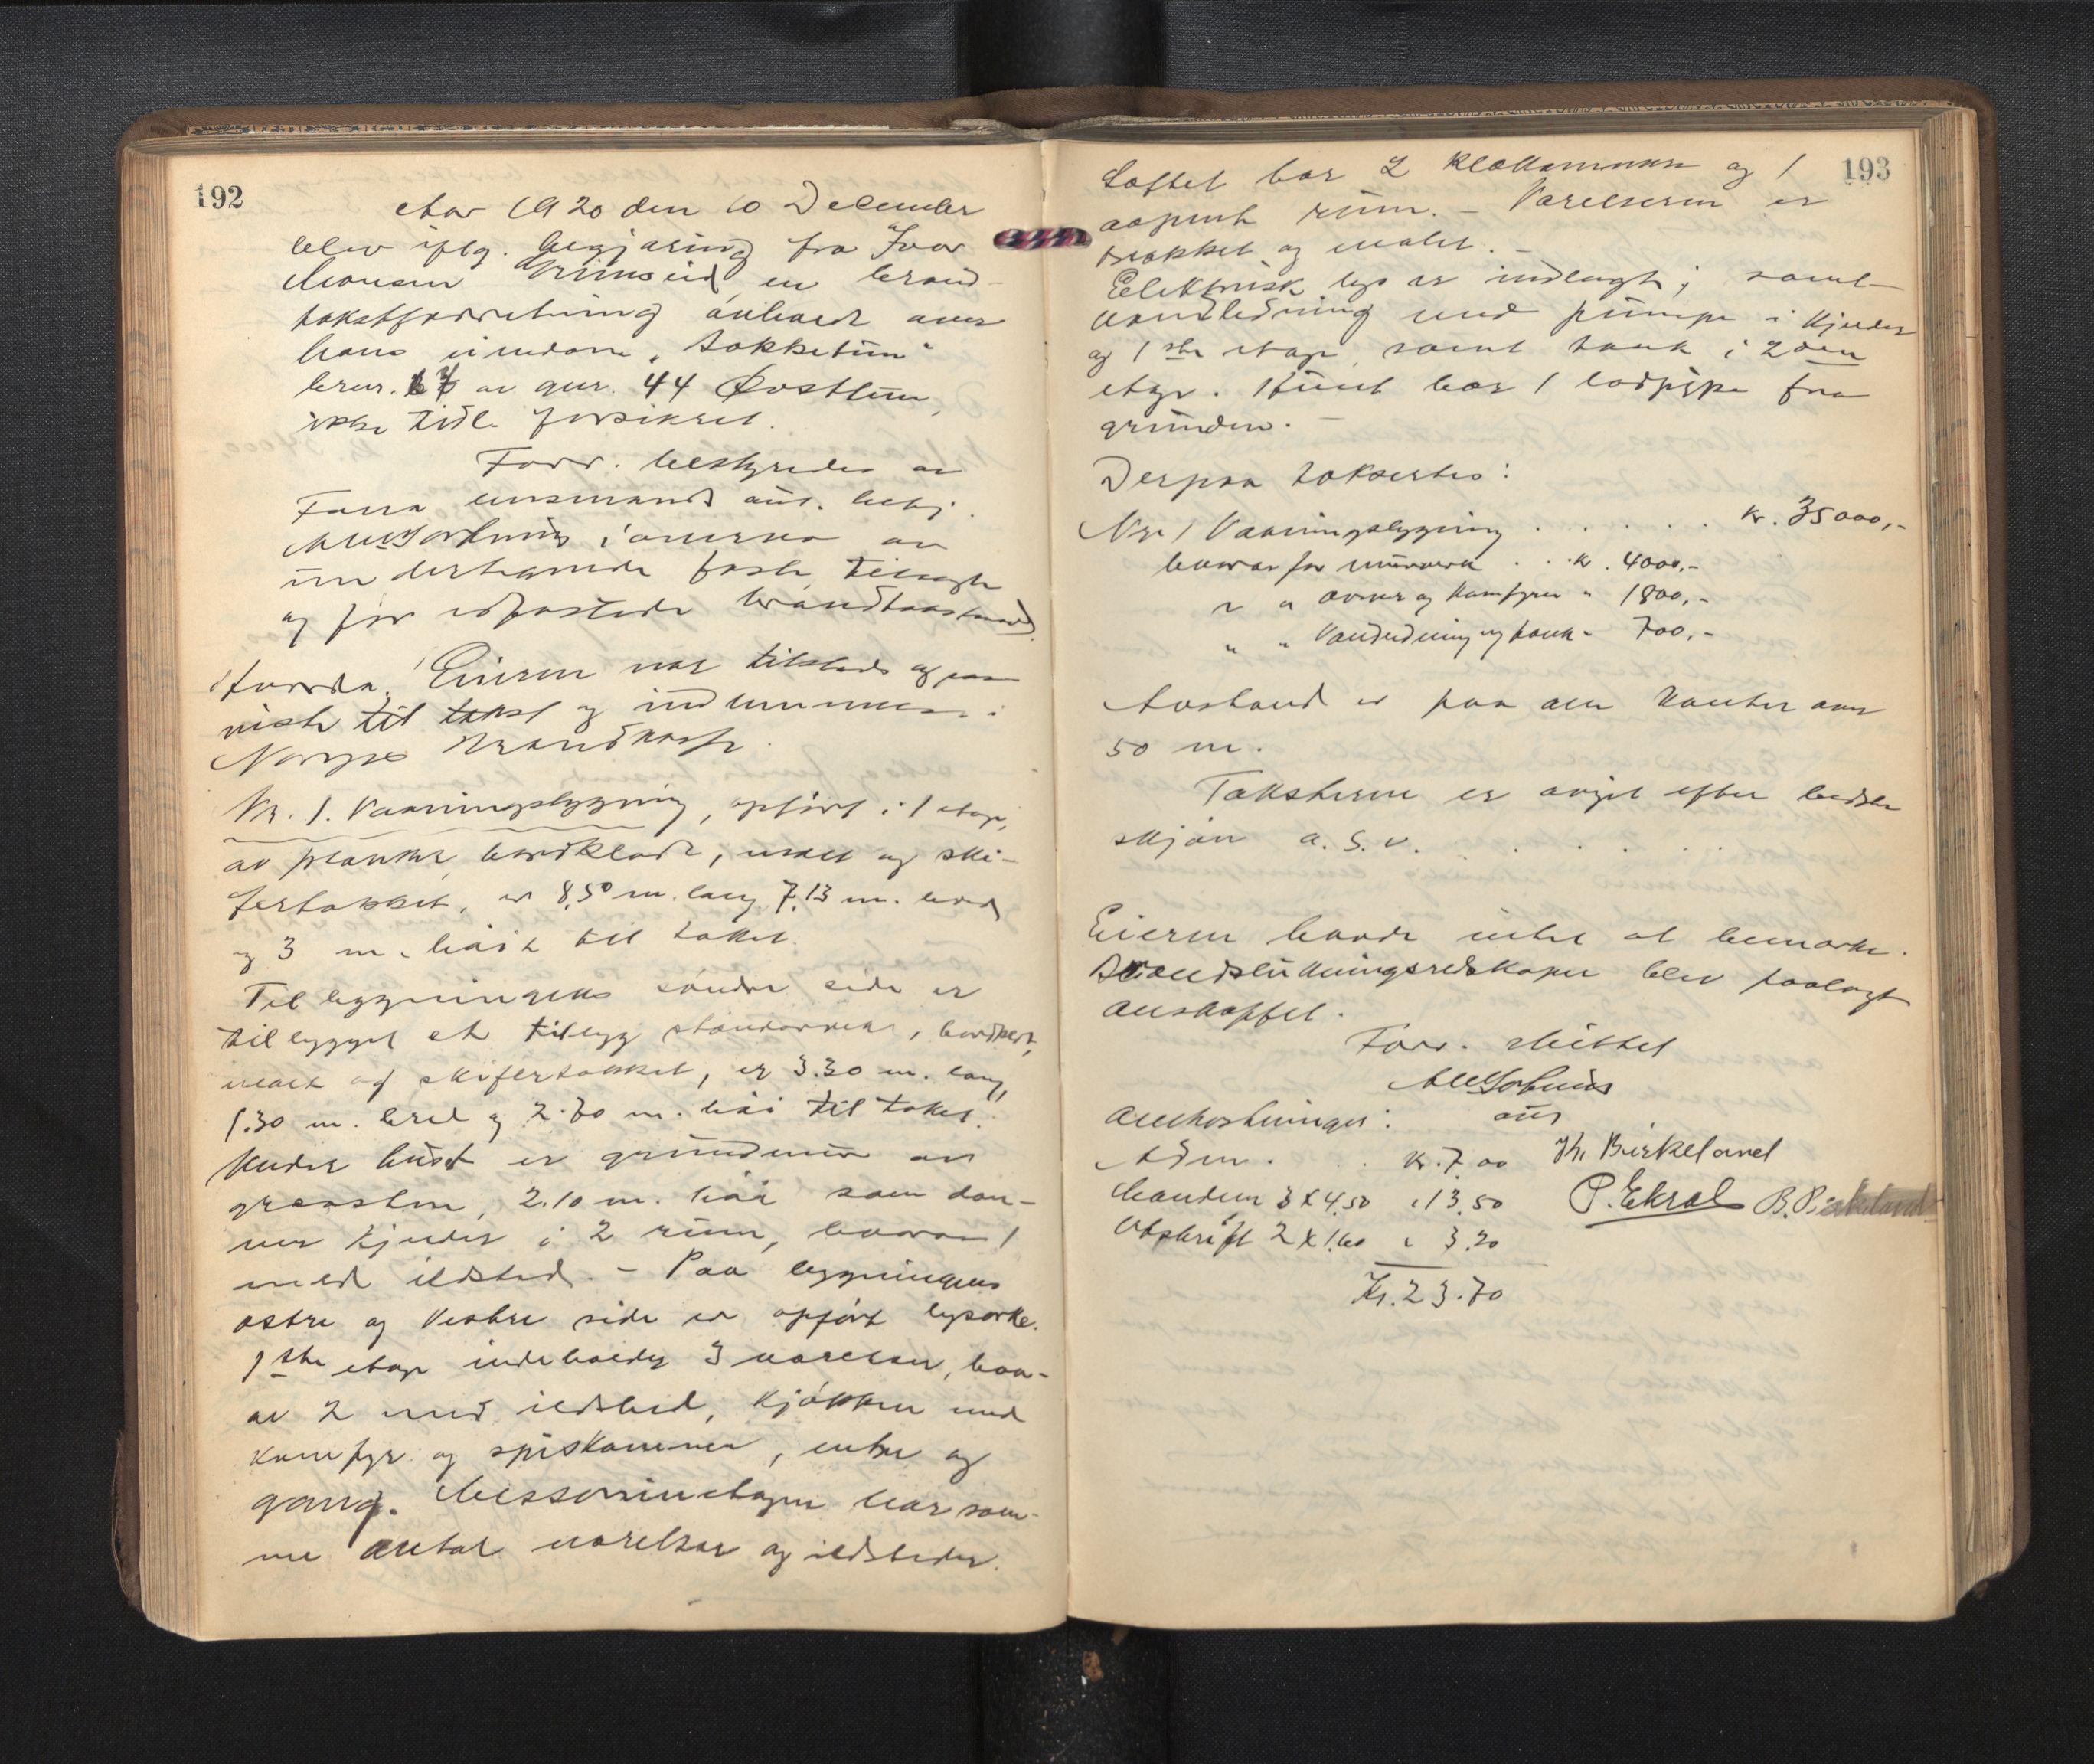 192
Aar 1920 den 10 December
blev iflg. begjæring fra Ivar
Monsen Grimseid en brand-
takstforretning avholdt over
hans eiendom
brnr. av gnr. 44 Øvsttun,
ikke tidl. forsikret.
Forr. bestyredes av
Fana lensmand aut. betj.
i overvær av
undertegnede faste, tilsagte
og før edfæstede brandtakstmænd.
Eieren var tilstede og paa-
viste til takst og indlemmelse i
Norges Brandkasse.
Nr. 1. Vaaningsbygning, opført i 1 etage,
av planker, bordklædt, malt og ski-
fertækket, er 8,50 m. lang 7,13 m. bred
og 3 m. høi til taket.
Til bygningens søndre side er
tilbygget et tilbygg , bordklædt,
malt og skifertækket, er 3.30 m. lang,
1.30 m. bred og 2.70 m. høi til taket.
Under huset er grundmur av
graasten, 2.10 m. høi som dan-
ner kjelder i 2 rum, hvorav 1
med ildsted. - Paa bygningens
østre og vestre side er opført lysarke.
1ste etage indeholder 3 værelser, hvor-
av 2 med ildsted, kjøkken med
komfyr og spiskammer, entre og
gang. Messaninetagen har sam-
me antal værelser og ildsteder.
193
Loftet har 2 klækammere og 1
aapent rum. - Værelserne er
trukket og malet. -
Elektrisk lys er indlagt; samt
vandledning med pumpe i kjelder
og 1ste etage samt tank i 2den
etage. Huset har 1 lodpipe fra
grunden. -
Derpaa taksertes:
Nye 1 Vaaningsbygning . . . . . . Kr. 35000,-
hvorav for murverk . . . kr. 4000,-
" " ovner og komfyrer " 1800,-
" " Vandledning og tank " 700,-
Avstand er paa alle kanter over
50 m.
Taksterne er avgit efter bedste
skjøn a. s. v. . . . . .
Eieren havde intet at bemærke.
Brandslukningsredskaper blev paalagt
anskaffet.
Forr. sluttet
aut
Omkostninger:
Adm. . . kr. 7.00 Kr. Birkeland
Mændene 3 X 4.50 " 13.50 P. Ekrol B. Birkeland
Utskrift 2 X 1.60 " 3.20
Kr. 23.70